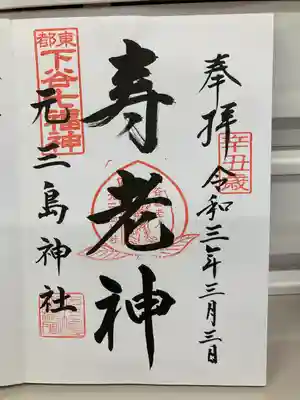 奉拝
令和三年三月三日
辛丑歳
寿老神
東都
下谷七福神
元三島神社